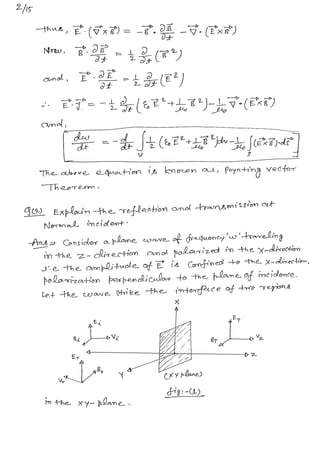 2/15
thus, E⃗·(∇⃗×B⃗) = −B⃗·∂B⃗/∂t − ∇⃗·(E⃗×B⃗)
Now, B⃗·∂B⃗/∂t = 1/2 ∂/∂t (B⃗²)
and, E⃗·∂E⃗/∂t = 1/2 ∂/∂t (E⃗²)
∴ E⃗·J⃗ = −1/2 ∂/∂t (ε₀E⃗² + 1/μ₀ B⃗²) − 1/μ₀ ∇⃗·(E⃗×B⃗)
and,
dw/dt = −d/dt ∫ᵥ 1/2 (ε₀E⃗² + 1/μ₀ B⃗²)dv − 1/μ₀ ∫ₛ (E⃗×B⃗)·ds⃗
The above equation is known as, Poynting vector
Theorem.
Explain the reflection and transmission at
Normal incident.
Ans:→ Consider a plane wave of frequency 'ω' traveling
in the z-direction and polarized in the X-direction
i.e the amplitude of E⃗ is confined to the x-direction,
polarization perpendicular to the plane of incidence.
Let the wave strike the interface of two regions
X
Ei
ET
Bi
Vi
BT
Er
Z
Br
Y
Vr
(XY plane)
fig:-(1)
in the xy-plane.